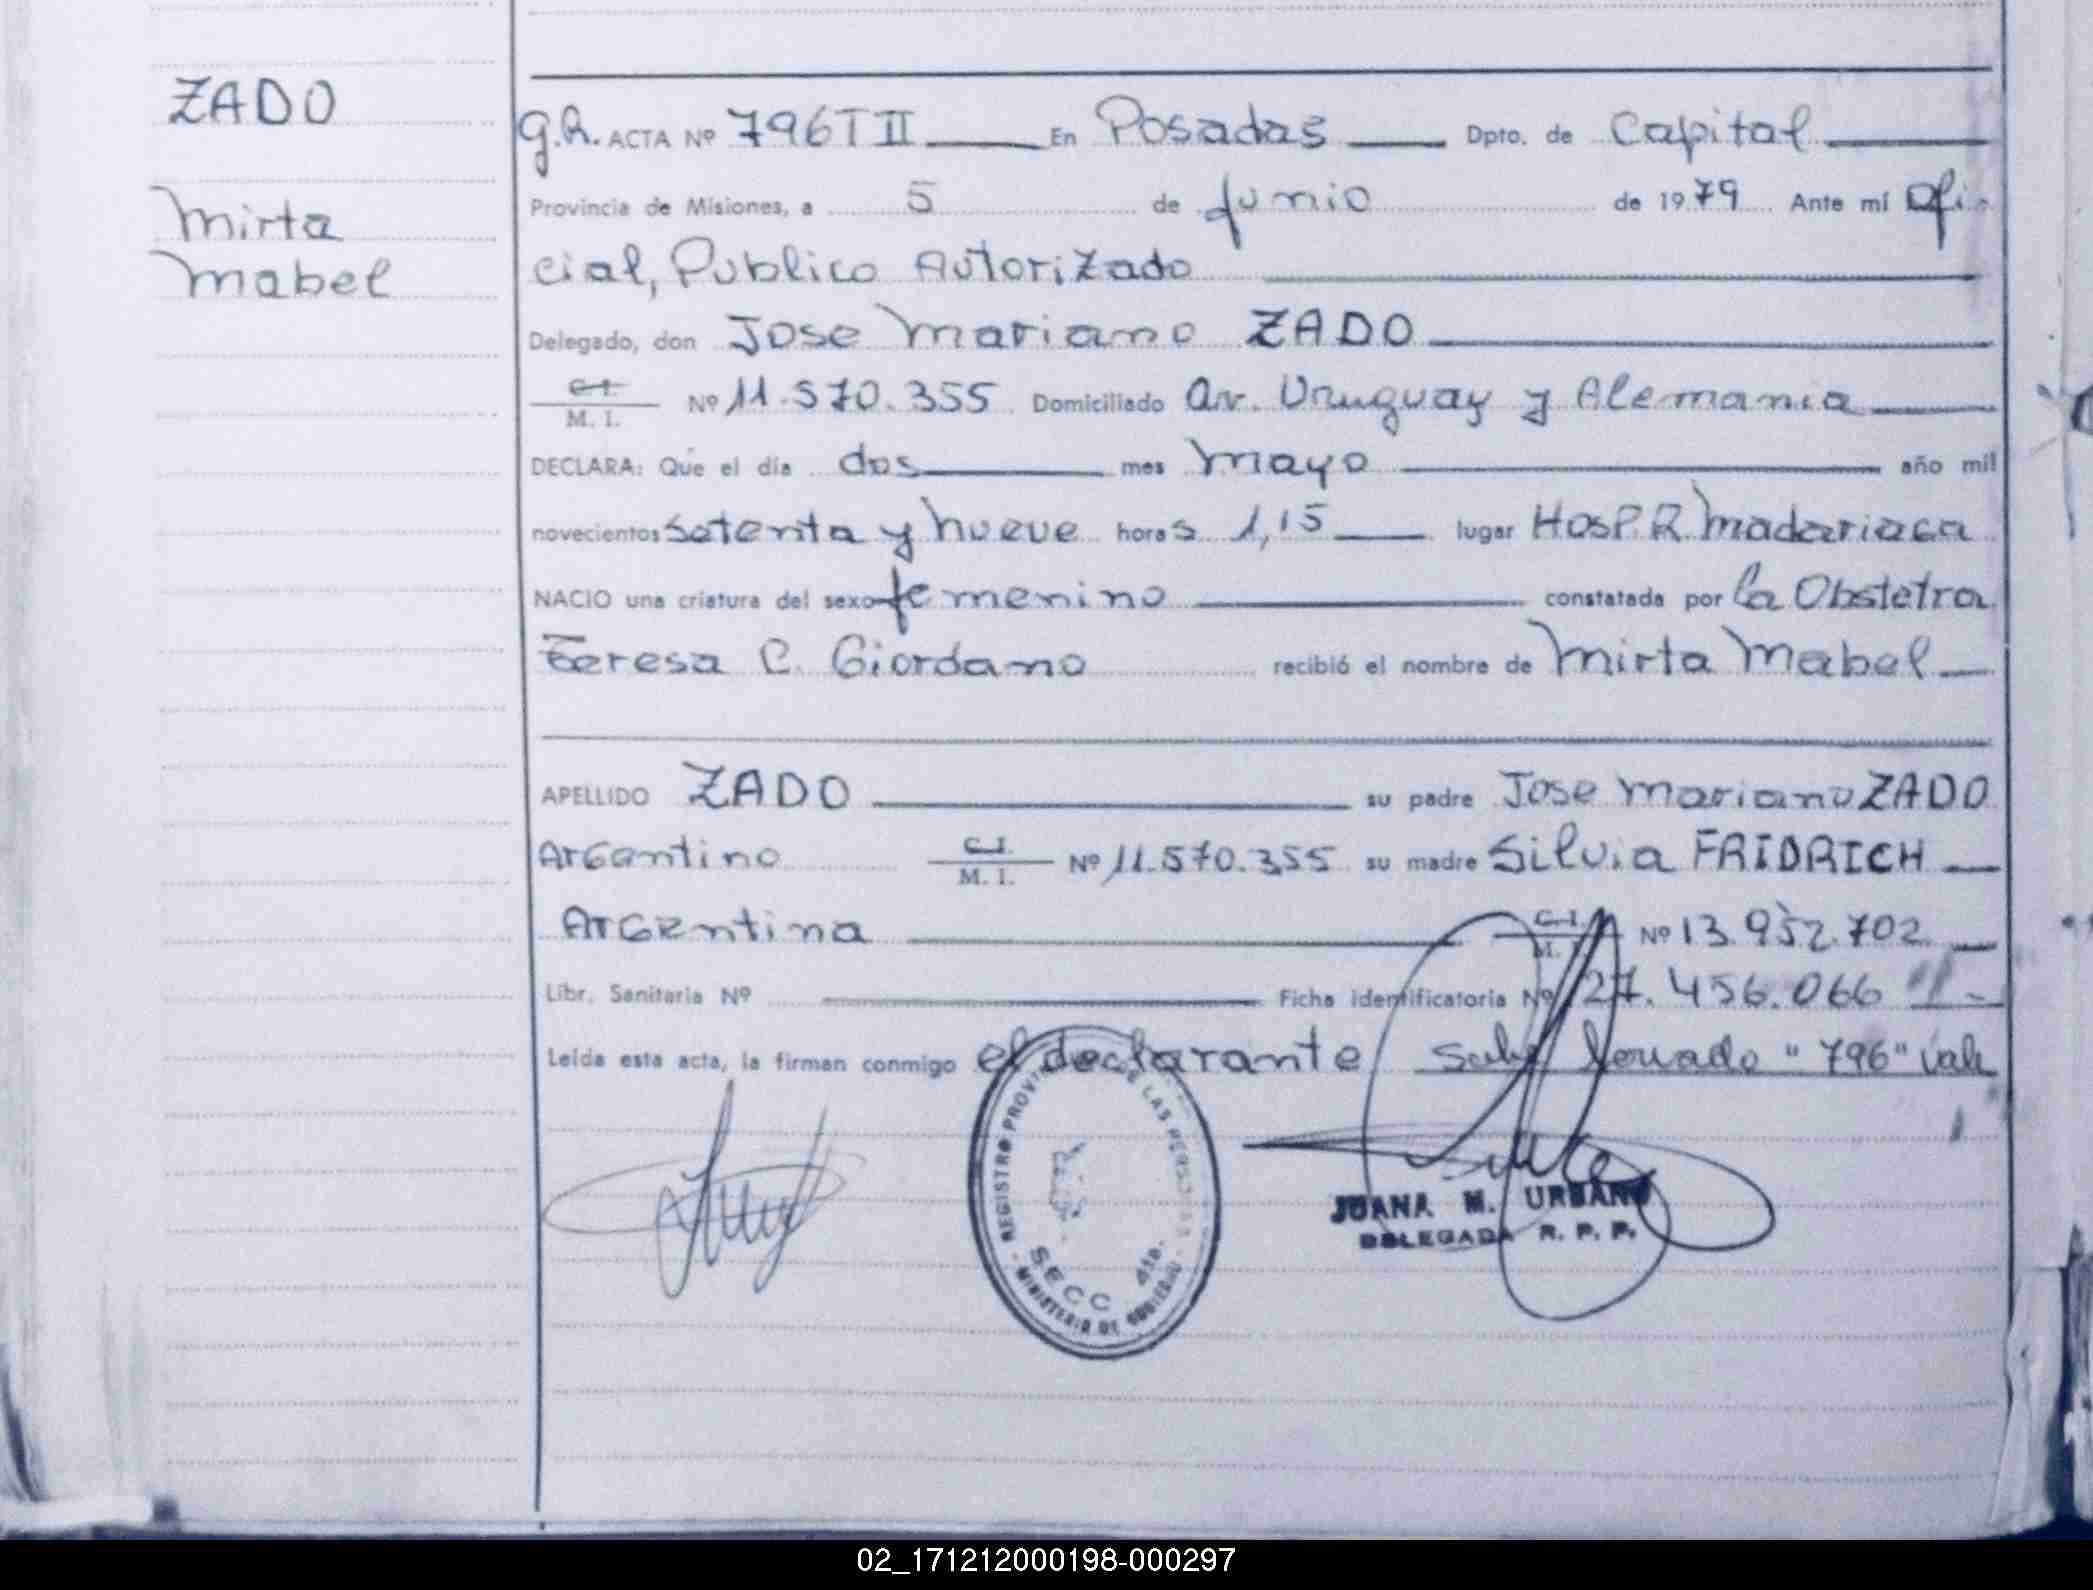 ZADO
Mirta
Mabel
g.R. ACTA Nº 796 T II En Posadas Dpto. de Capital
Provincia de Misiones, a 5 de junio de 1979 Ante mí Ofi-
cial, Publico Autorizado
Delegado, don Jose Mariano ZADO
C.I. M. I. Nº 11.570.355 Domiciliado Av. Uruguay y Alemania
DECLARA: Que el día dos mes mayo año mil
novecientos setenta y nueve horas 1,15 lugar Hosp. R. Madariaga
NACIO una criatura del sexo femenino constatada por la Obstetra
Teresa C. Giordano recibió el nombre de Mirta Mabel
APELLIDO ZADO su padre Jose Mariano ZADO
Argentino C.I. M. I. Nº 11.570.355 su madre Silvia FRIDRICH
Argentina C.I. M. I. Nº 13.952.702
Libr. Sanitaria Nº Ficha identificatoria Nº 27.456.066
Leída esta acta, la firman conmigo el declarante "796" vale
REGISTRO PROVINCIAL DE LAS PERSONAS
SECC 4ta.
MINISTERIO DE GOBIERNO
JUANA M. URBANO
DELEGADA R. P. P.
02_171212000198-000297